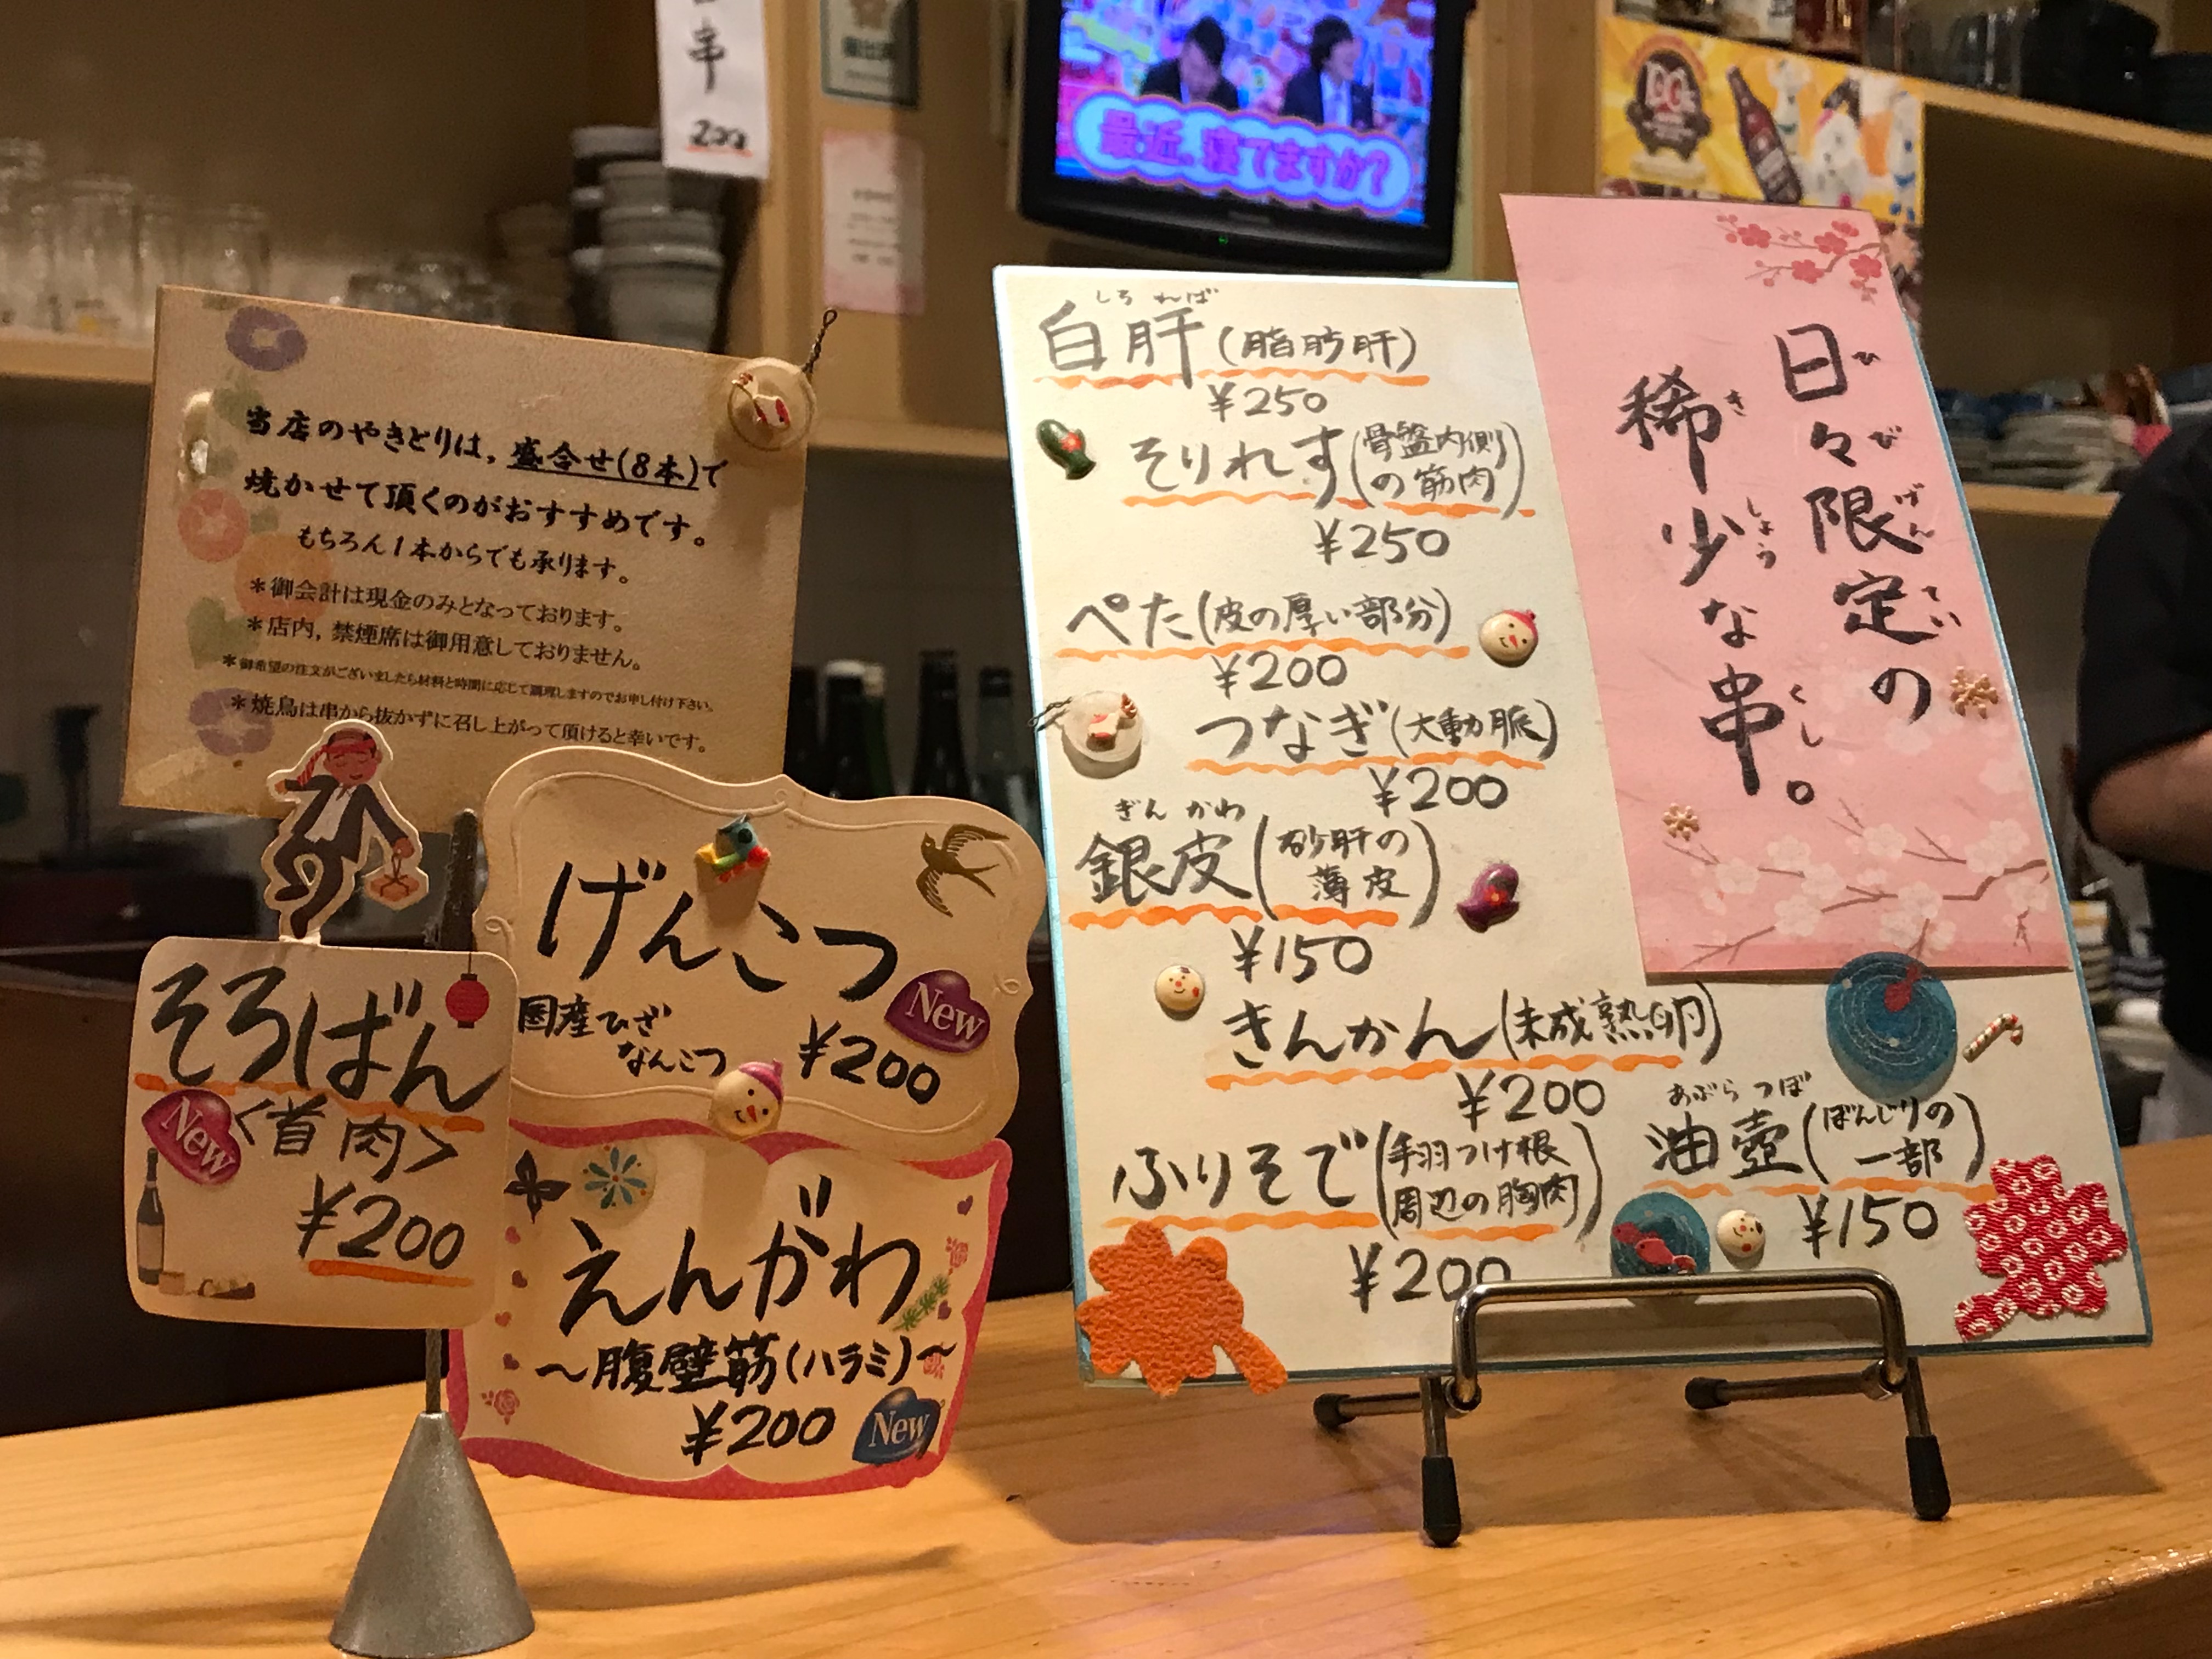 串
200
最近、寝てますか?
当店のやきとりは,盛合せ(8本)で
焼かせて頂くのがおすすめです。
もちろん1本からでも承ります。
*御会計は現金のみとなっております。
*店内,禁煙席は御用意しておりません。
*御希望の注文がございましたら材料と時間に応じて調理しますのでお申し付け下さい。
*焼鳥は串から抜かずに召し上がって頂けると幸いです。
そろばん
New
<首肉>
¥200
げんこつ
New
国産ひざ
なんこつ
¥200
えんがわ
~腹壁筋(ハラミ)~
¥200
New
しろ ればー
白肝(脂肪肝)
¥250
そりれす(骨盤内側
の筋肉)
¥250
ぺた(皮の厚い部分)
¥200
つなぎ(大動脈)
¥200
ぎん かわ
銀皮(砂肝の
薄皮)
¥150
きんかん(未成熟卵)
¥200
ふりそで(手羽つけ根
周辺の胸肉)
¥200
あぶら つぼ
油壺(ぼんじりの
一部)
¥150
ひ び げん てい
日々限定の
き しょう くし
稀少な串。